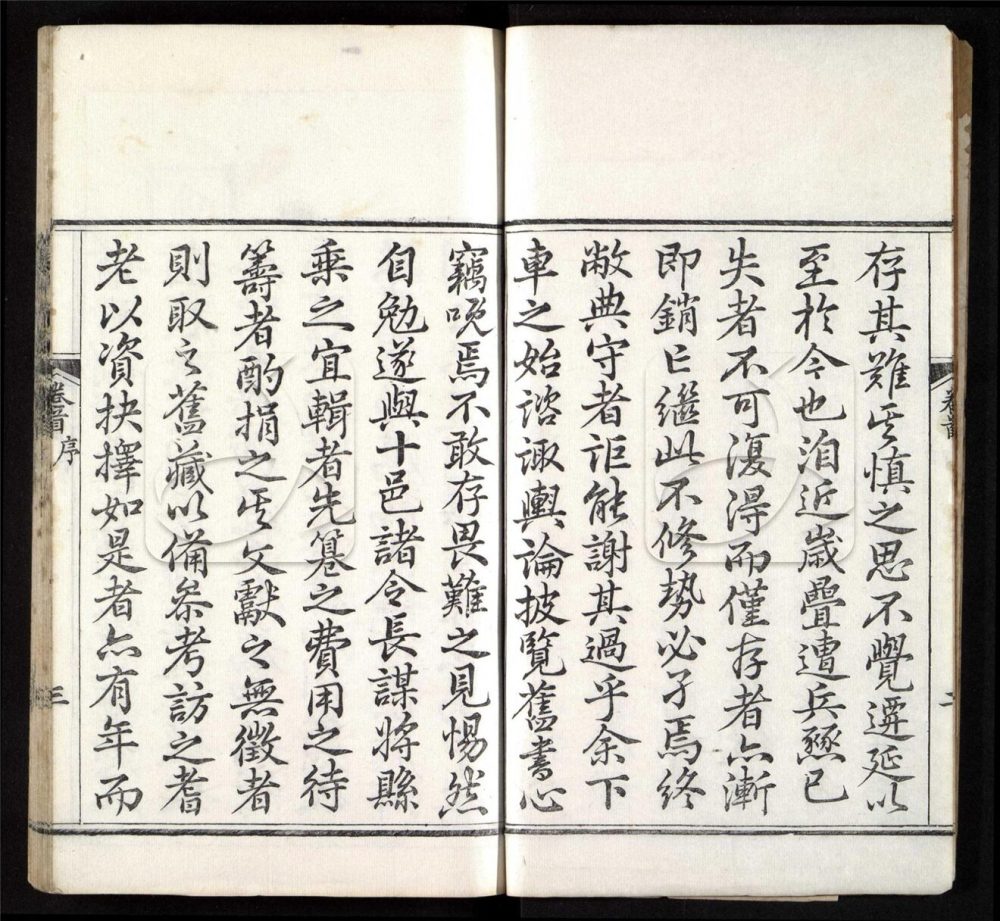 卷首
二
存其難其慎之思不覺遷延以
至於今也洎近歲疊遭兵燹已
失者不可復得而僅存者亦漸
即銷亡繼此不修勢必孑焉終
敝典守者詎能謝其過乎余下
車之始諮諏輿論披覽舊書心
竊怳焉不敢存畏難之見惕然
自勉遂與十邑諸令長謀將縣
乘之宜輯者先纂之費用之待
籌者酌捐之其文獻之無徵者
則取之舊藏以備參考訪之耆
老以資抉擇如是者亦有年而
卷首 序
三